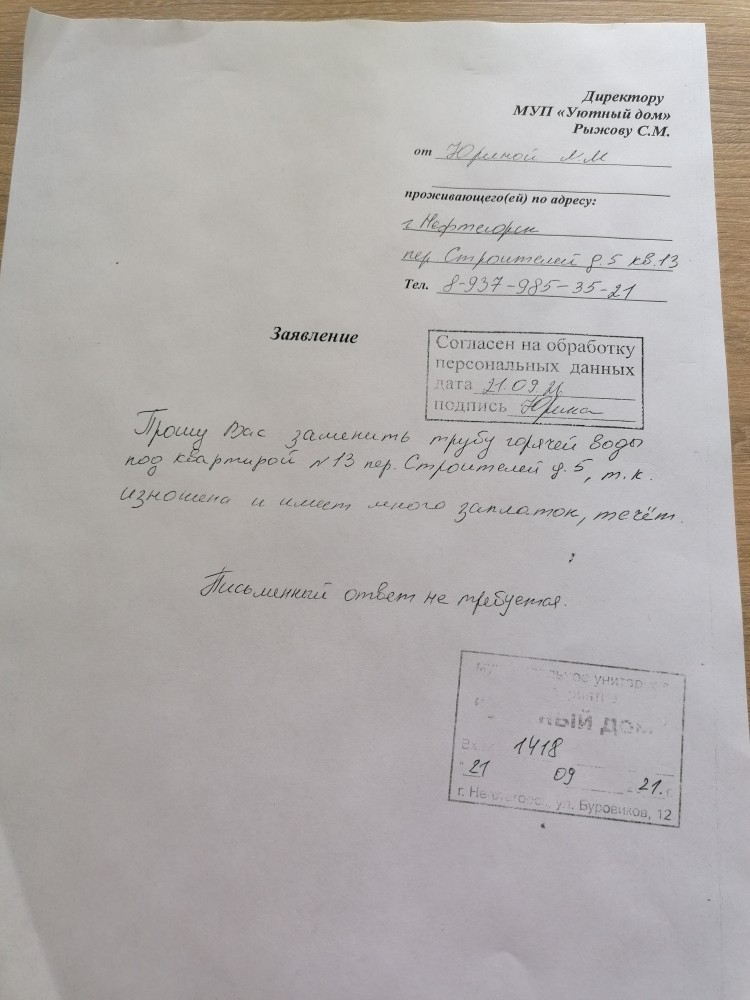 Директору
МУП «Уютный дом»
Рыжову С.М.
от Юриной Л.М
проживающего(ей) по адресу:
г Нефтегорск
пер Строителей д.5 кв.13
Тел. 8-937-985-35-21
Заявление
Согласен на обработку
персональных данных
дата 21.09.21
подпись Юрина
Прошу Вас заменить трубу горячей воды
под квартирой №13 пер. Строителей д.5, т.к.
изношена и имеет много заплаток, течёт.
Письменный ответ не требуется.
унитарное
дом
1418
"21 09 21. г
г. Нефтегорск, ул. Буровиков, 12